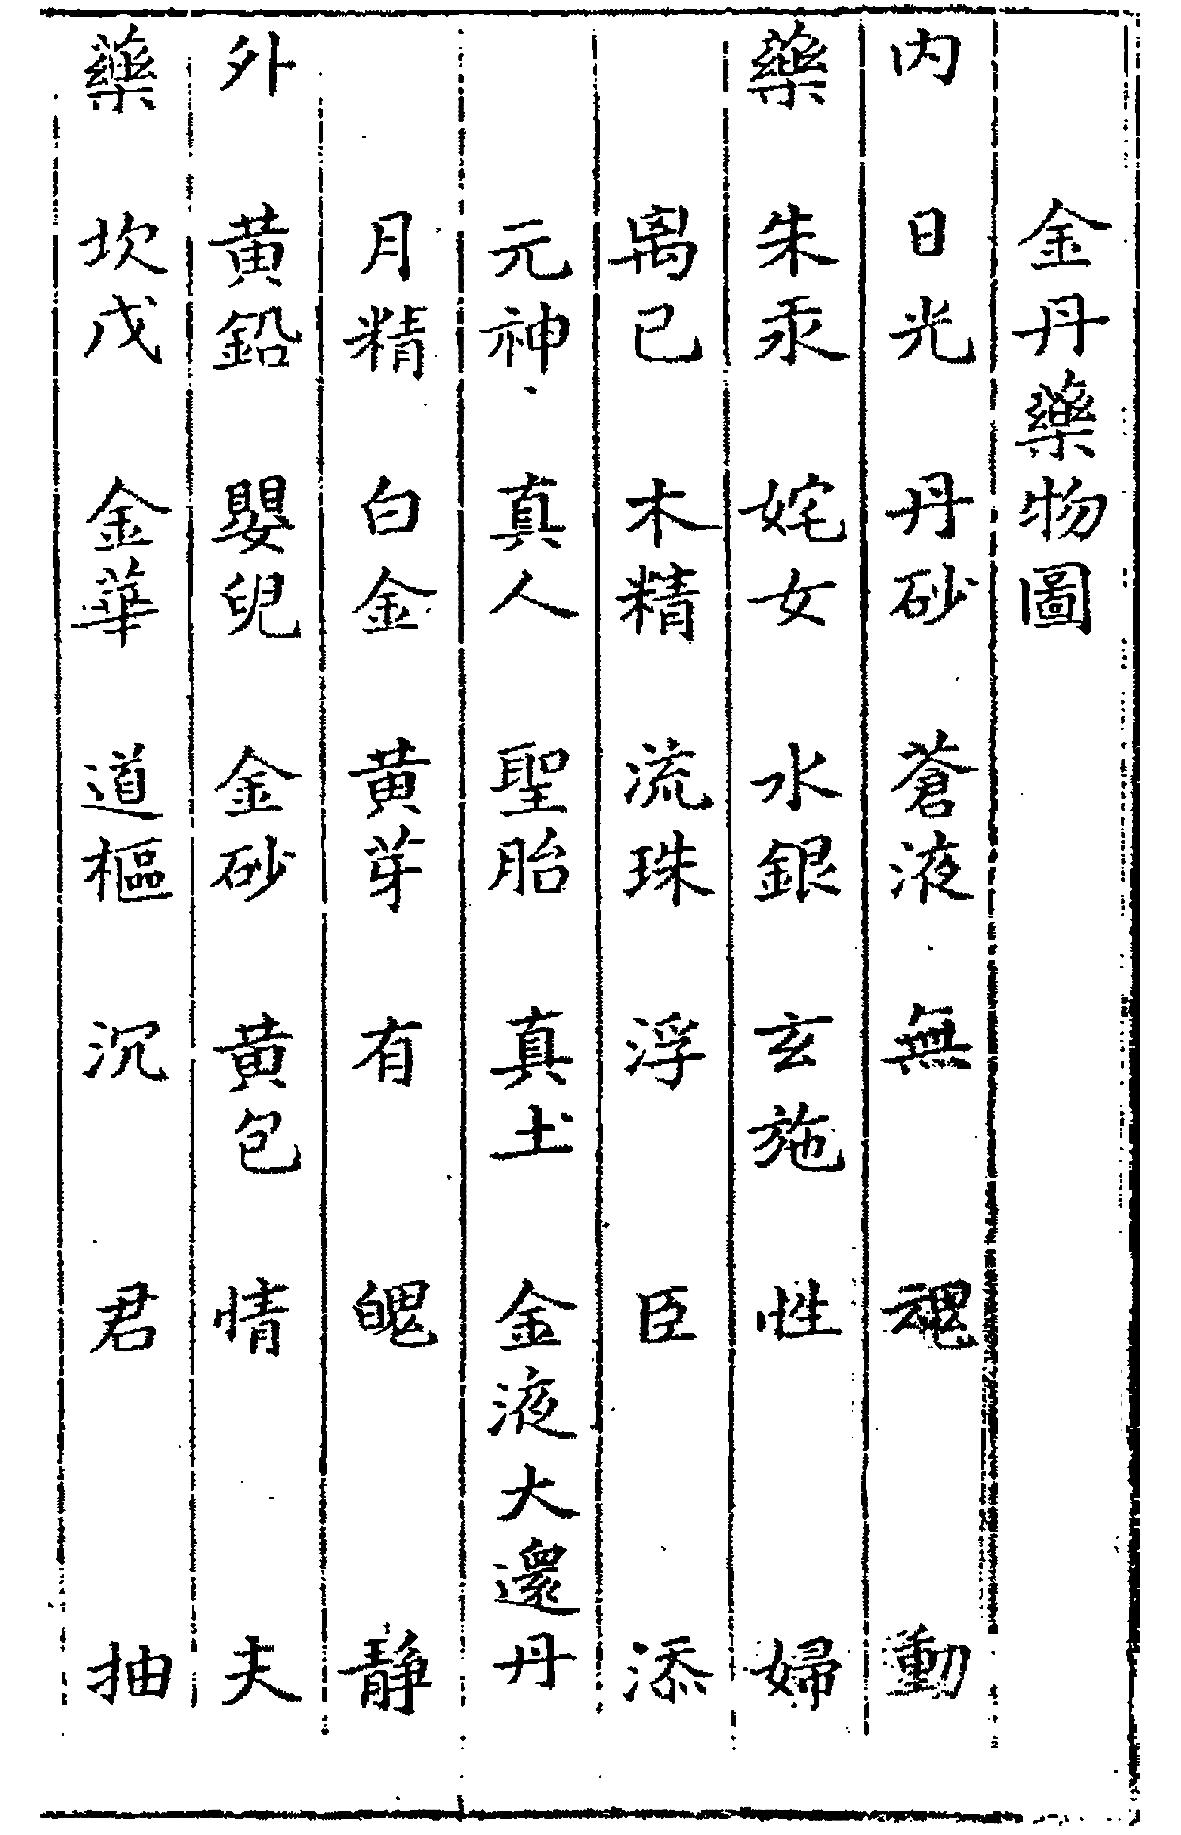 金丹藥物圖
内 日光 丹砂 蒼液 無 魂 動
藥 朱汞 姹女 水銀 玄施 性 婦
离已 木精 流珠 浮 臣 添
元神 真人 聖胎 真土 金液大還丹
月精 白金 黃芽 有 魄 静
外 黃鉛 嬰兒 金砂 黃包 情 夫
藥 坎戊 金華 道樞 沉 君 抽